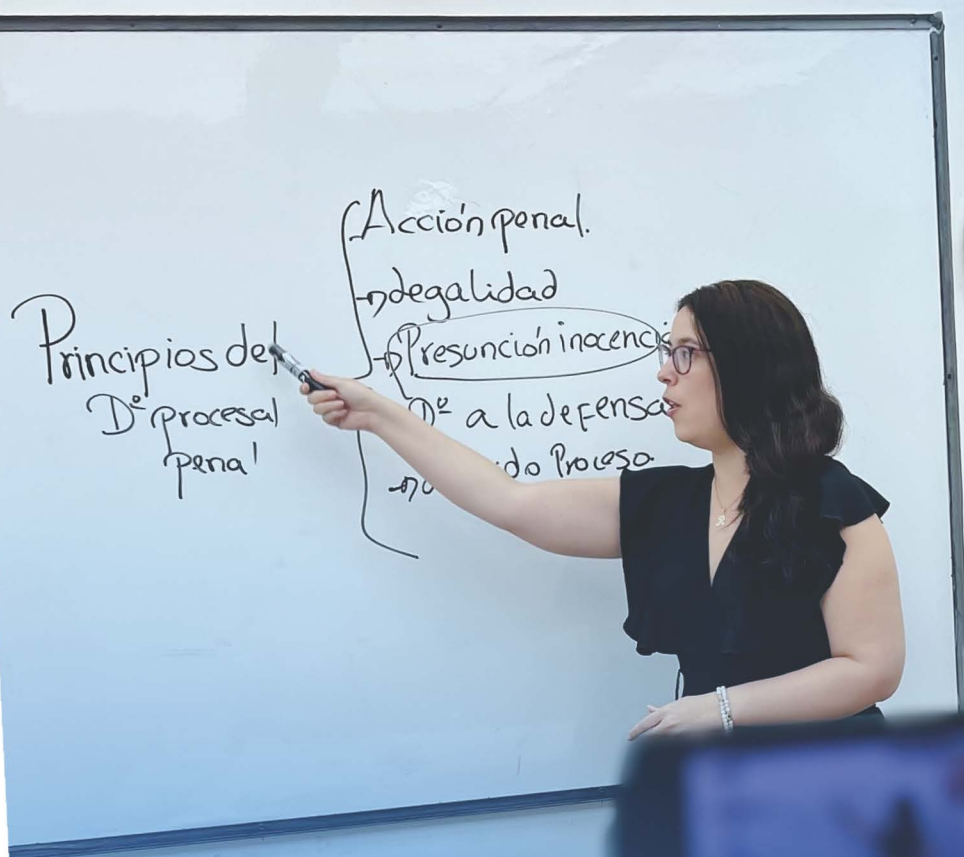 Principios del
Dº procesal
penal
Acción penal.
Legalidad
Presunción inocenci
Dº a la defensa
do Proceso.